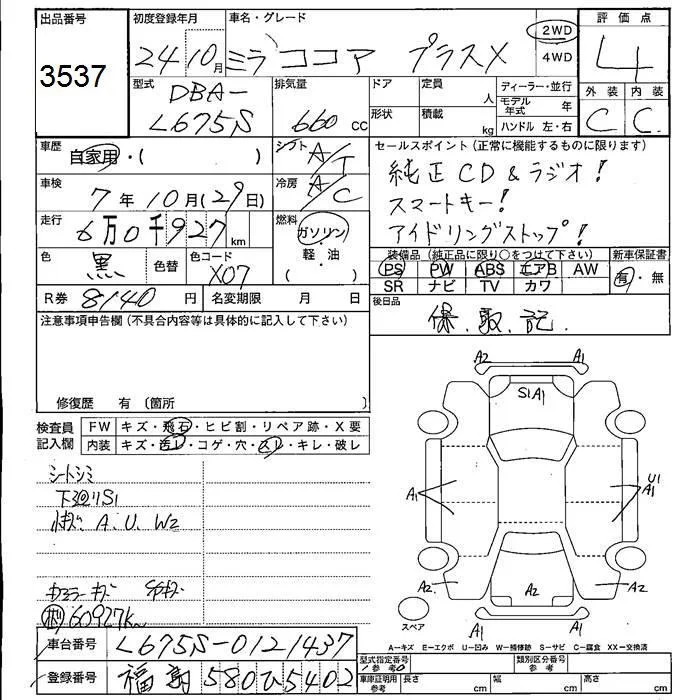 出品番号
3537
初度登録年月
24 10月
車名・グレード
ミラ ココア プラスX
2WD
4WD
評価点
4
外装 内装
C C
型式
DBA-
L675S
排気量
660 CC
ドア
形状
定員
人
積載
kg
ディーラー・並行
モデル年式 年
ハンドル 左・右
車歴
自家用・( )
シフト
A/T
セールスポイント(正常に機能するものに限ります)
純正CD&ラジオ!
スマートキー!
アイドリングストップ!
車検
7年10月(29日)
冷房
A/C
走行
6万0千927km
燃料
ガソリン
軽・油
( )
色
黒
色替
色コード
X07
装備品(純正品に限り○をつけて下さい)
新車保証書
PS PW ABS エアB AW
有・無
SR ナビ TV カワ
R券 8140円
名変期限 月 日
後日品
保.取.記.
注意事項申告欄(不具合内容等は具体的に記入して下さい)
修復歴 有 〔箇所 〕
検査員記入欄
FW キズ・飛石・ヒビ割・リペア跡・X要
内装 キズ・汚レ・コゲ・穴・スレ・キレ・破レ
シートシミ
下廻リS1
A.U.W2
60927km
A2 A1
S1A1
A1
U1
A1
A2 A2 A2
A1 A1
スペア
A=キズ E=エクボ U=凹み W=補修跡 S=サビ C=腐食 XX=交換済
車台番号 L675S-0121437
登録番号 福島 580ひ5402
型式指定番号
参考
類別区分番号
参考
車庫証明用
参考
長さ cm 幅 cm 高さ cm